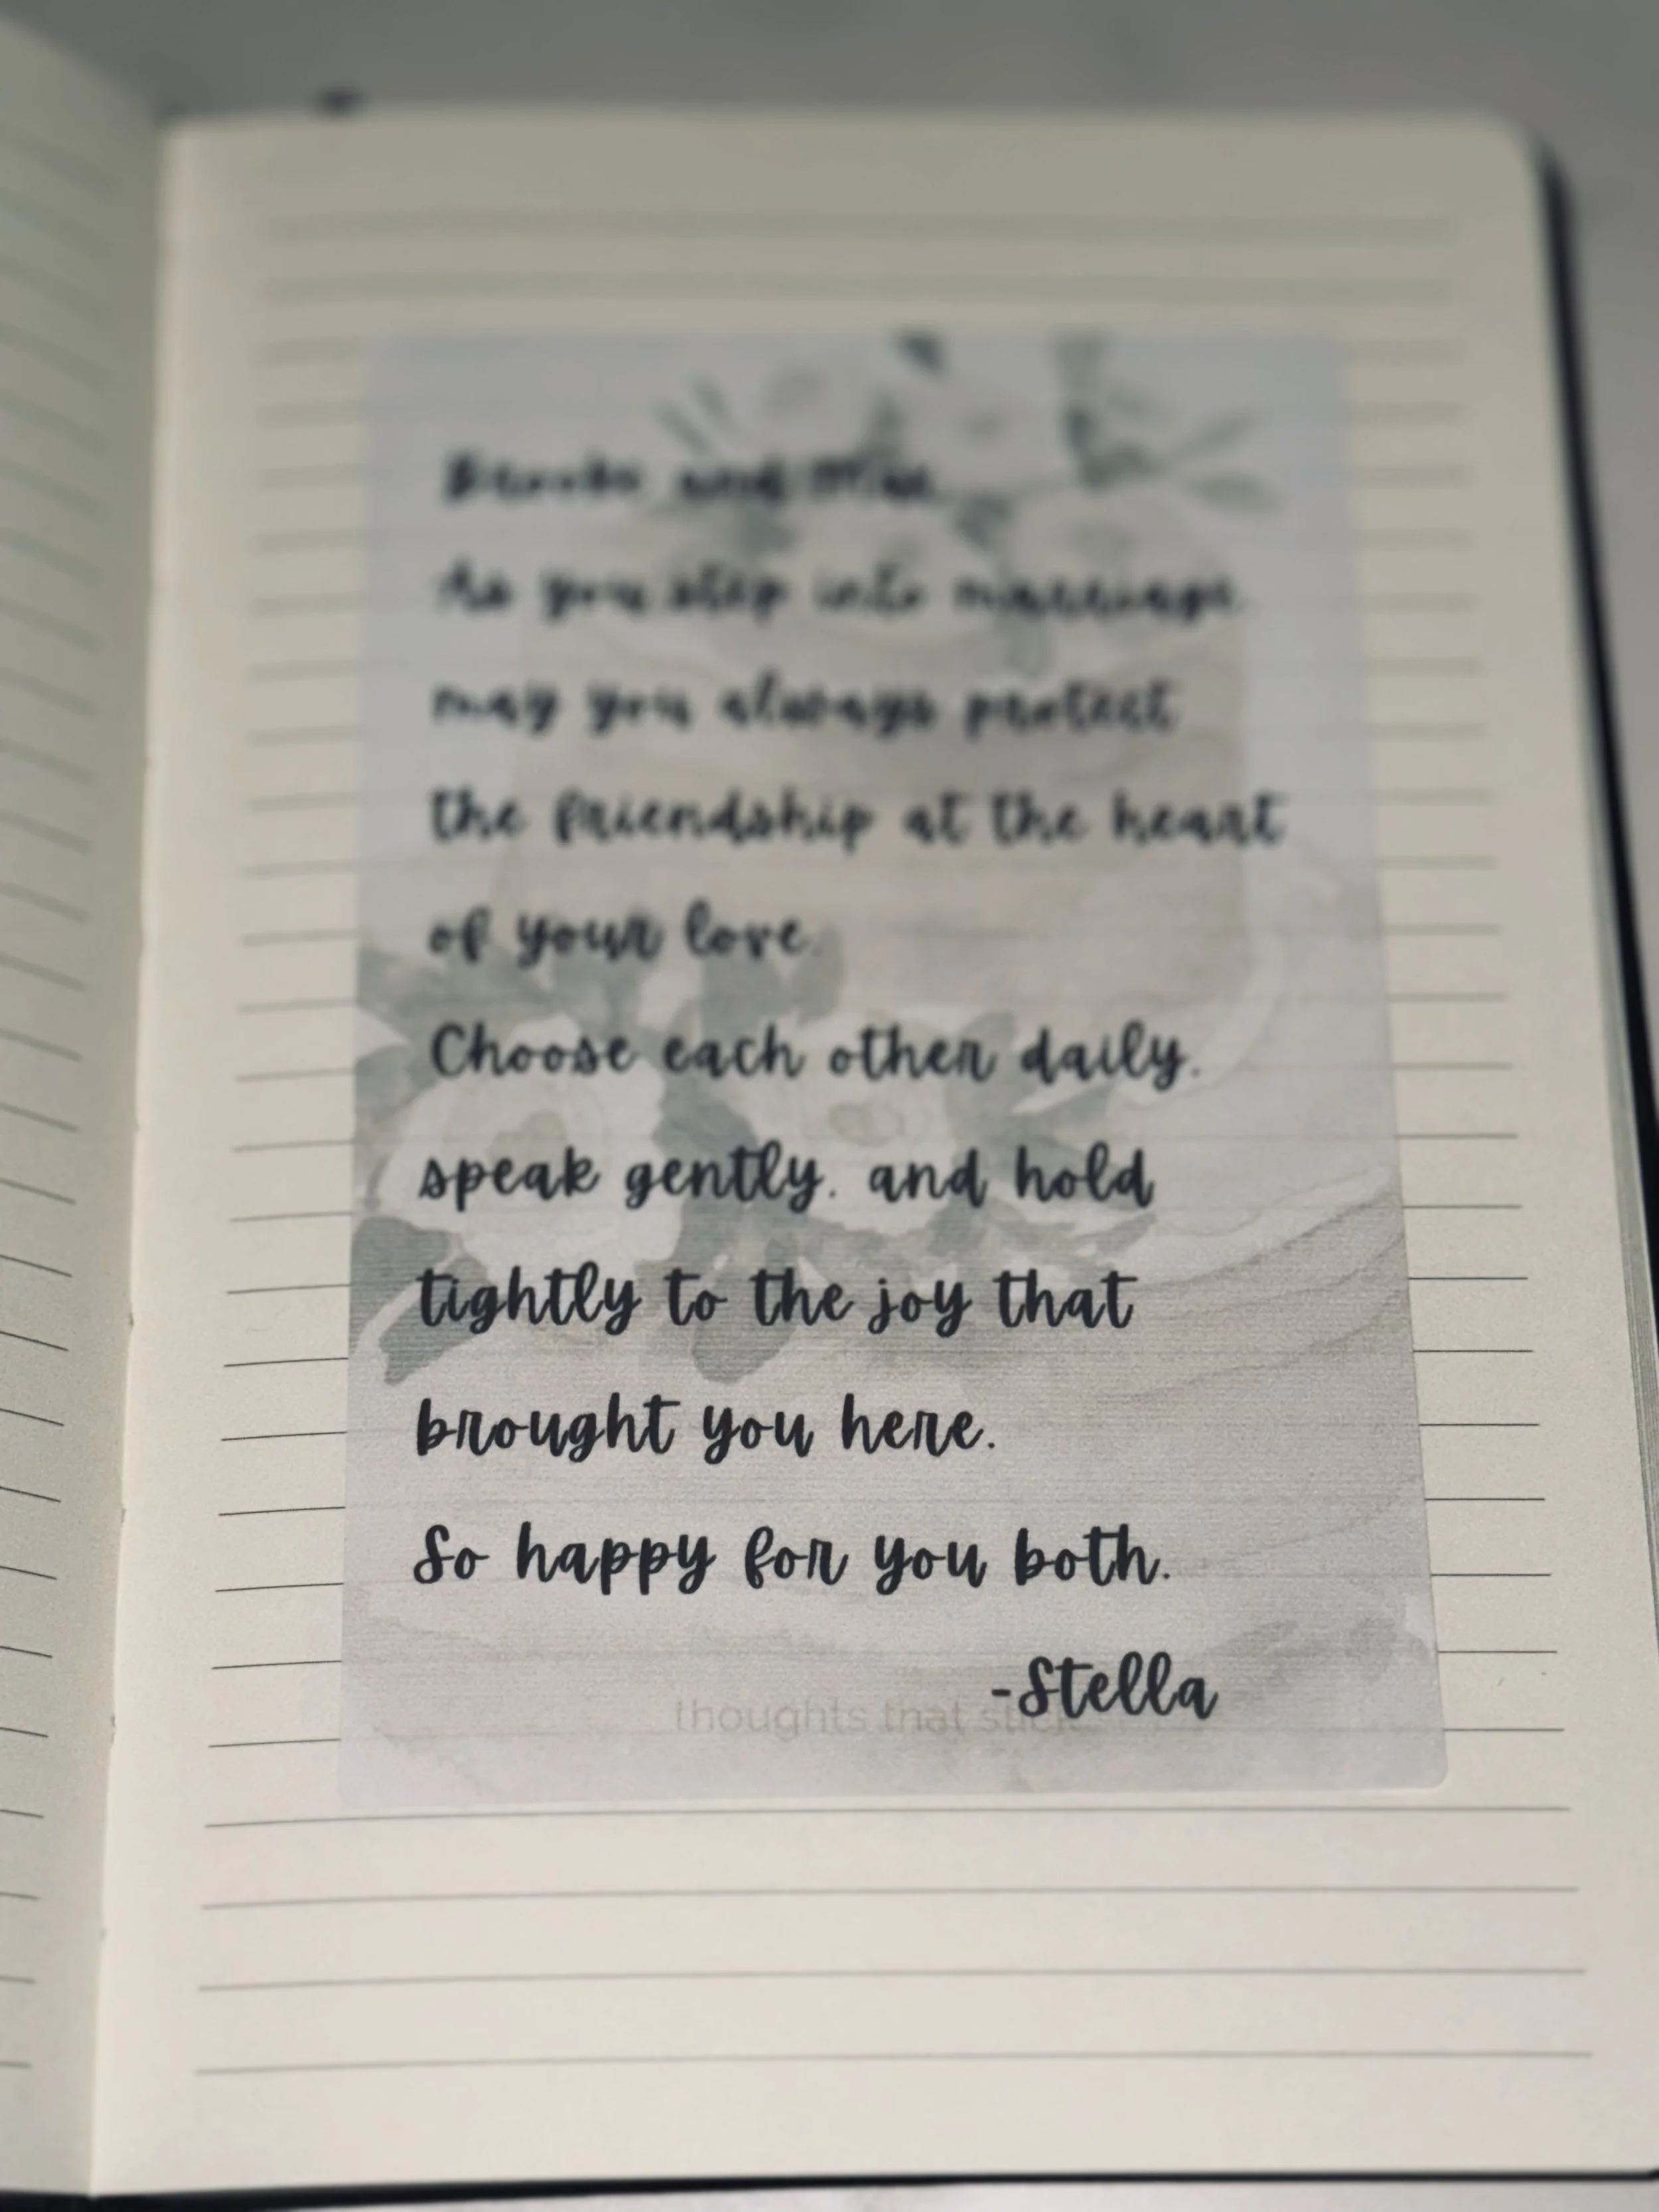 and
As you step into marriage
may you always protect
the friendship at the heart
of your love.
Choose each other daily,
speak gently, and hold
tightly to the joy that
brought you here.
So happy for you both.
-Stella
thoughts that stick